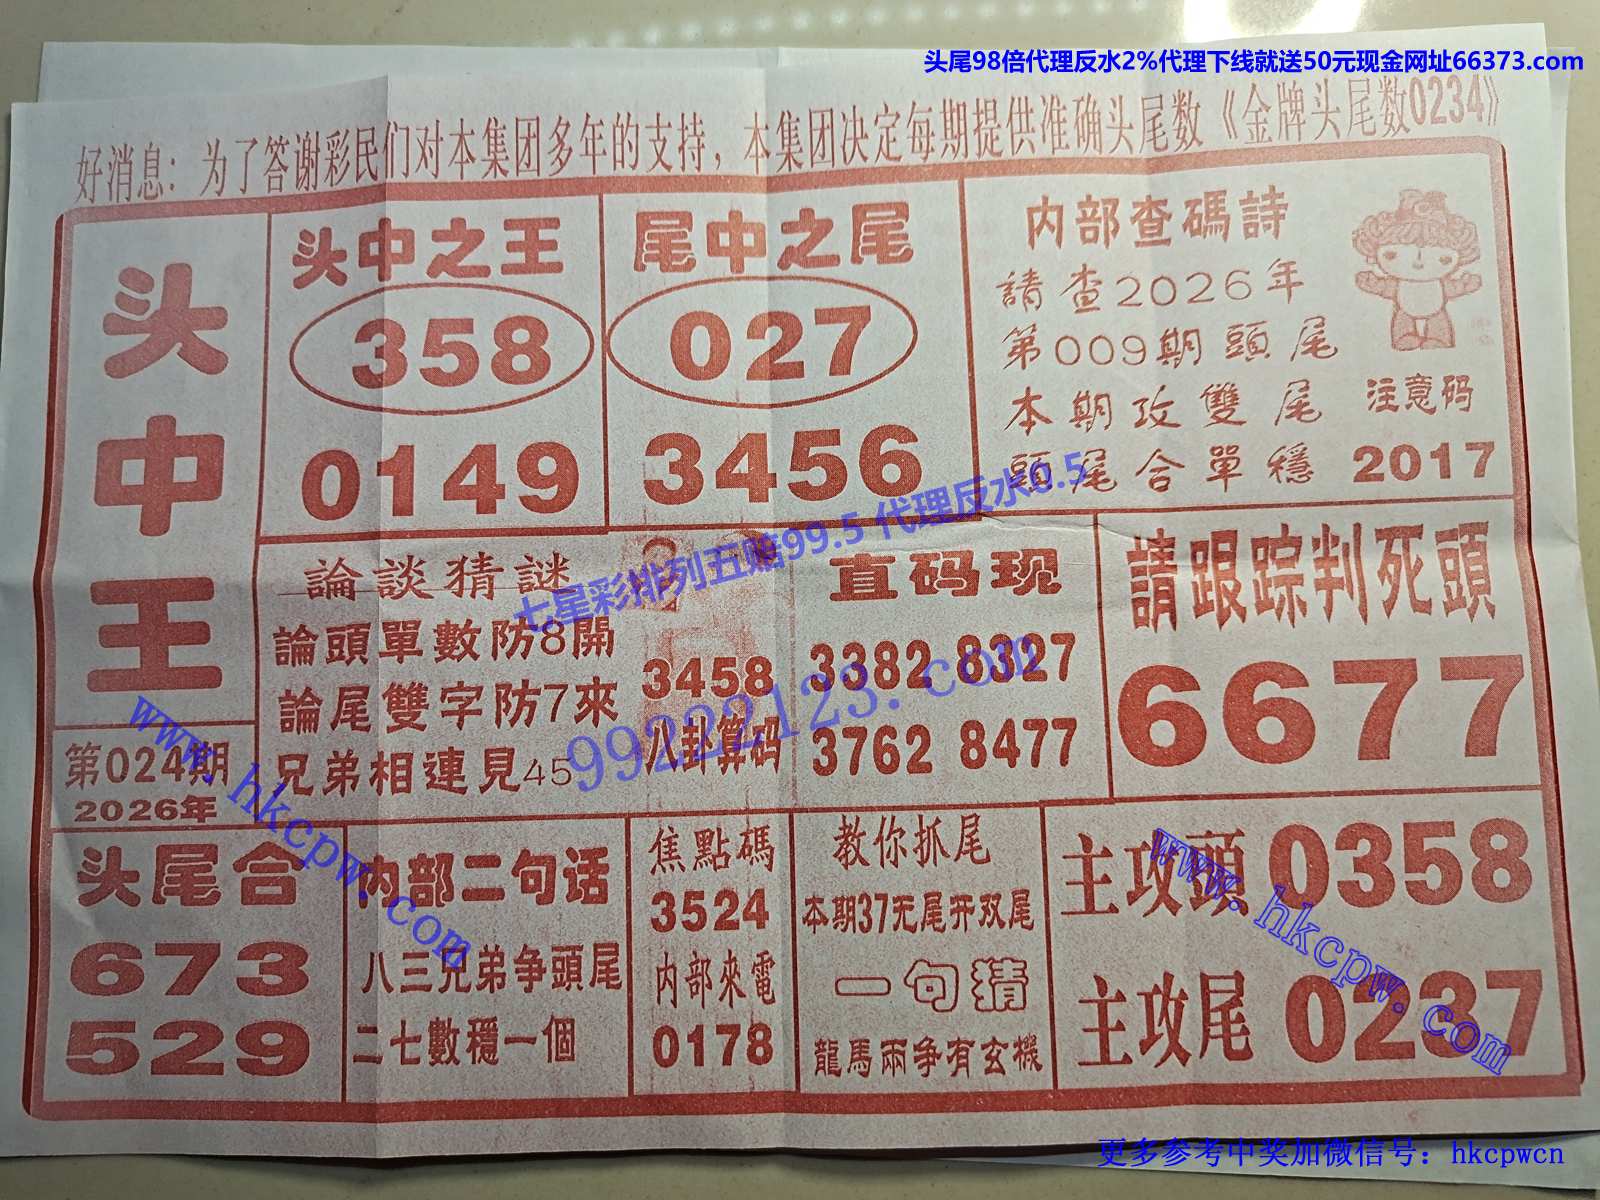 头尾98倍代理反水2%代理下线就送50元现金网址66373.com
好消息：为了答谢彩民们对本集团多年的支持，本集团决定每期提供准确头尾数《金牌头尾数0234》
头中王
第024期
2026年
头中之王
358
0149
尾中之尾
027
3456
内部查碼詩
請查2026年
第009期頭尾
本期攻雙尾
頭尾合單穩
注意码
2017
論談猜謎
論頭單數防8開
論尾雙字防7來
兄弟相連見45
3458
八卦算码
直码现
3382 8327
3762 8477
請跟踪判死頭
6677
头尾合
673
529
内部二句话
八三兄弟争頭尾
二七數穩一個
焦點碼
3524
内部來電
0178
教你抓尾
本期37无尾开双尾
一句猜
龍馬兩争有玄機
主攻頭 0358
主攻尾 0237
七星彩排列五赔99.5 代理反水0.5
99222123.com
www.hkcpw.com
www.hkcpw.com
更多参考中奖加微信号：hkcpwcn